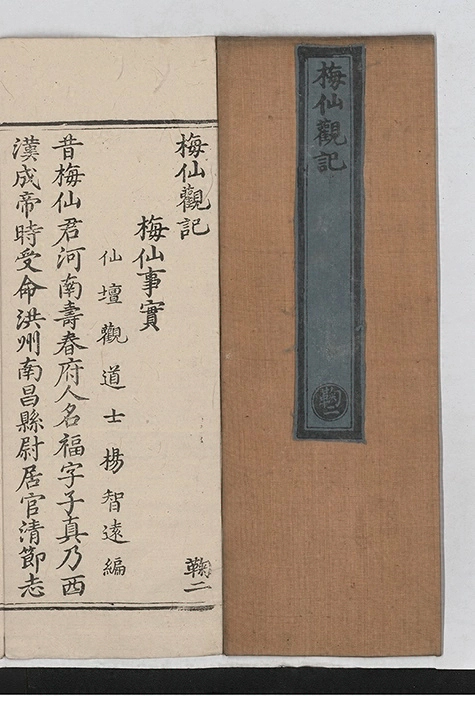 梅仙觀記
鞠二
梅仙觀記 鞠二
梅仙事實
仙壇觀道士楊智遠編
昔梅仙君河南壽春府人名福字子真乃西
漢成帝時受命洪州南昌縣尉居官清節志